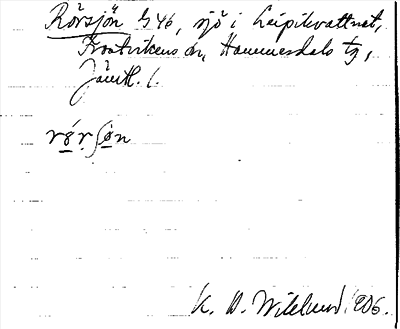 Rörsjön G 46, sjö i Leipikvattnet,
Frostvikens sn, Hammerdals tg,
Jämtl. l.
K. B. Wiklund 1906.